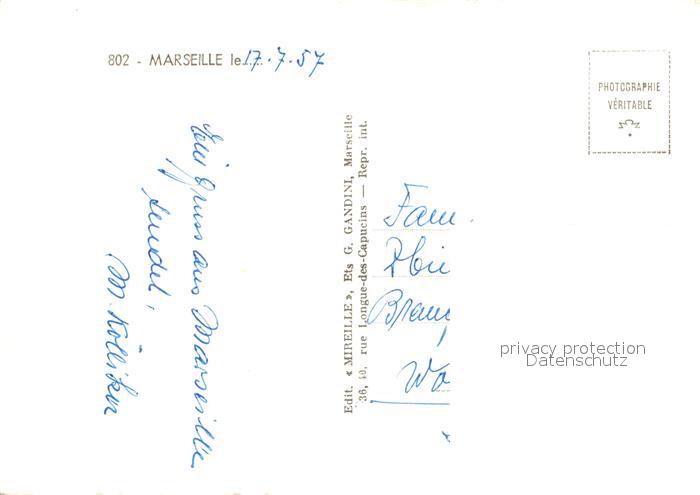 802 - MARSEILLE le 17.7.57
PHOTOGRAPHIE
VÉRITABLE
Ein Gruss aus Marseille
sendet,
M. Kölliker
Edit. « MIREILLE », Ets G. GANDINI, Marseille
36, 40, rue Longue-des-Capucins — Repr. int.
Fam.
privacy protection
Datenschutz